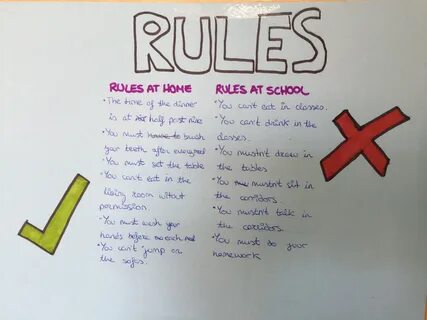 RULES
RULES AT HOME
• The time of the dinner
is at half past nine
• You must brush
your teeth after every meal
• You must set the table
• You can't eat in the
living room witout
permission.
• You must wash your
hands before each meal
• You can't jump on
the sofas.
RULES AT SCHOOL
• You can't eat in classes.
• You can't drink in the
classes.
• You mustn't draw in
the tables
• You mustn't sit in
the corridors
• You mustn't talk in
the corridors.
• You must do your
homework